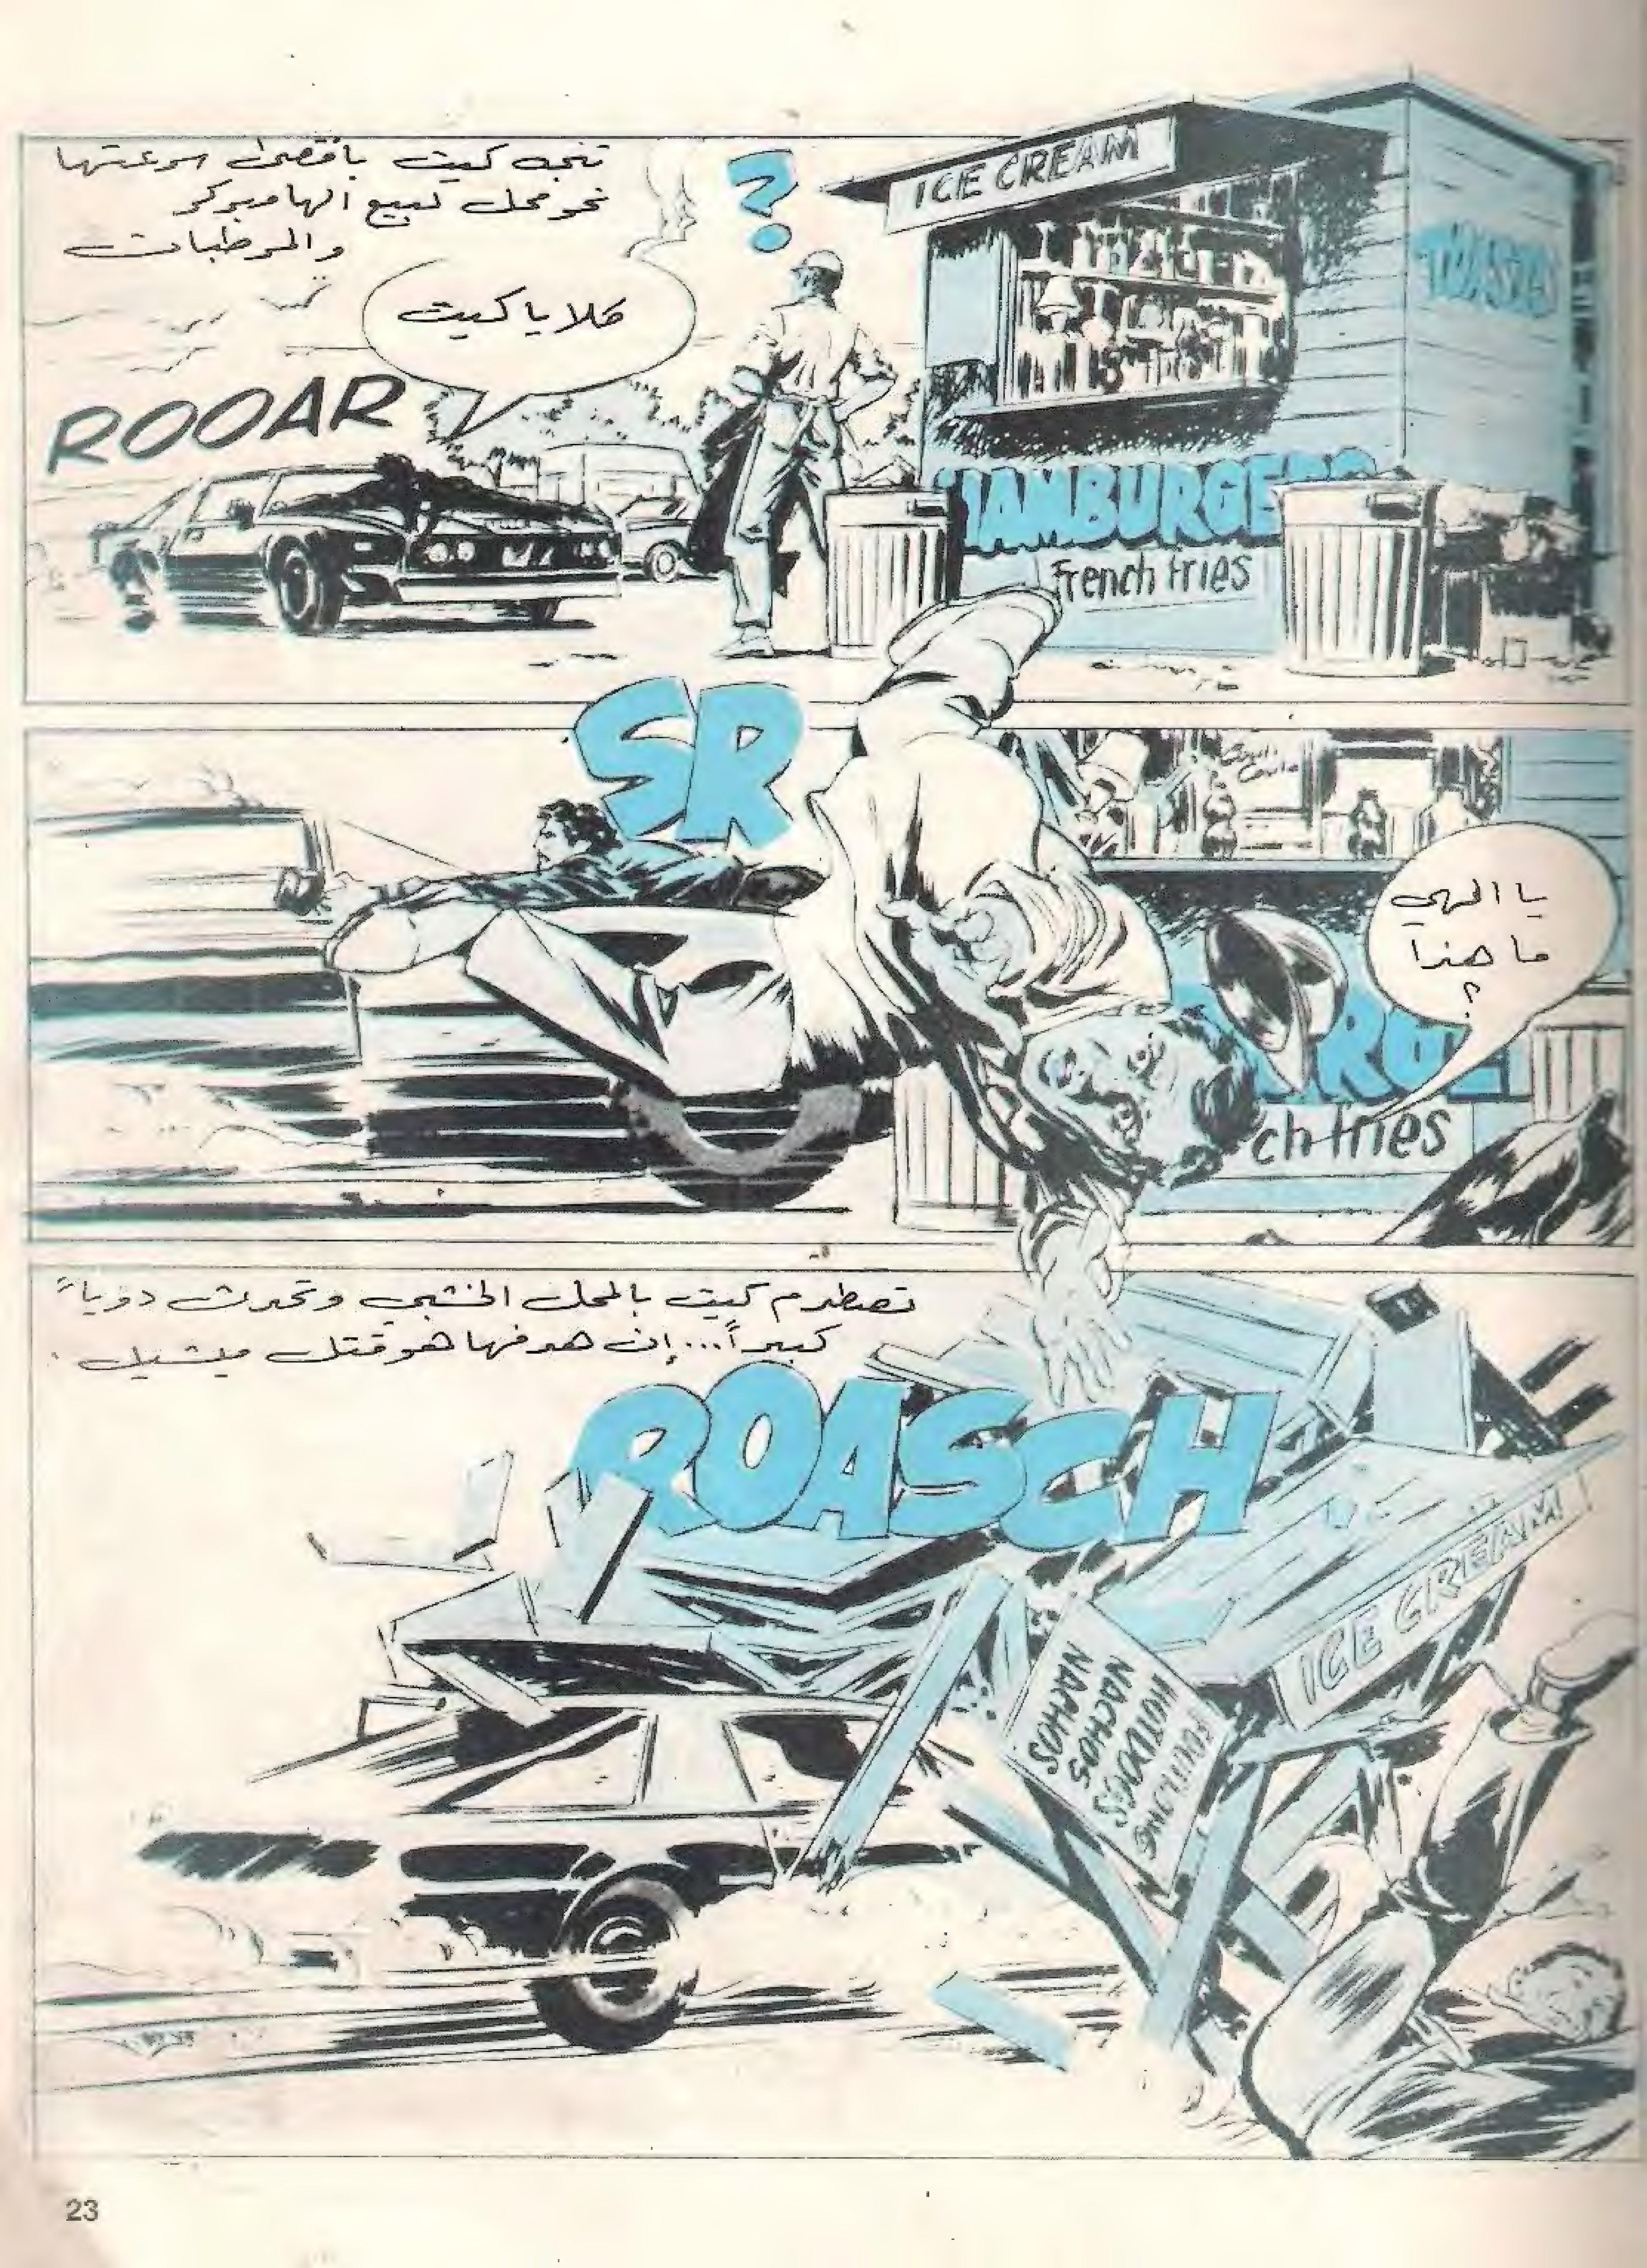 تتجه كيت بأقصى سرعتها
نحو محل لبيع الهامبركر
والمرطبات
?
ICE CREAM
TOASTS
كلا يا كيت
ROOAR
HAMBURGERS
French fries
SR
يا الهي
ما هذا
؟
ch fries
تصطدم كيت بالمحل الخشبي وتحدث دوياً
كبيراً... إن هدفها هو قتل ميشيل.
ROASCH
ICE CREAM
NACHOS
NACHOS
HOTDOGS
23